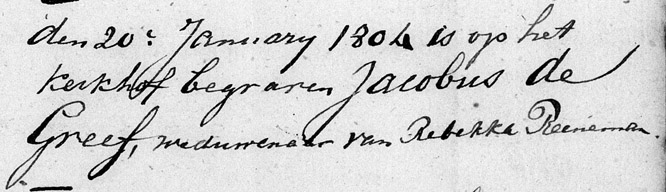 den 20e January 1804 is op het
kerkhof begraven Jacobus de
Greef, weduwenaar van Rebekka Reeneman.